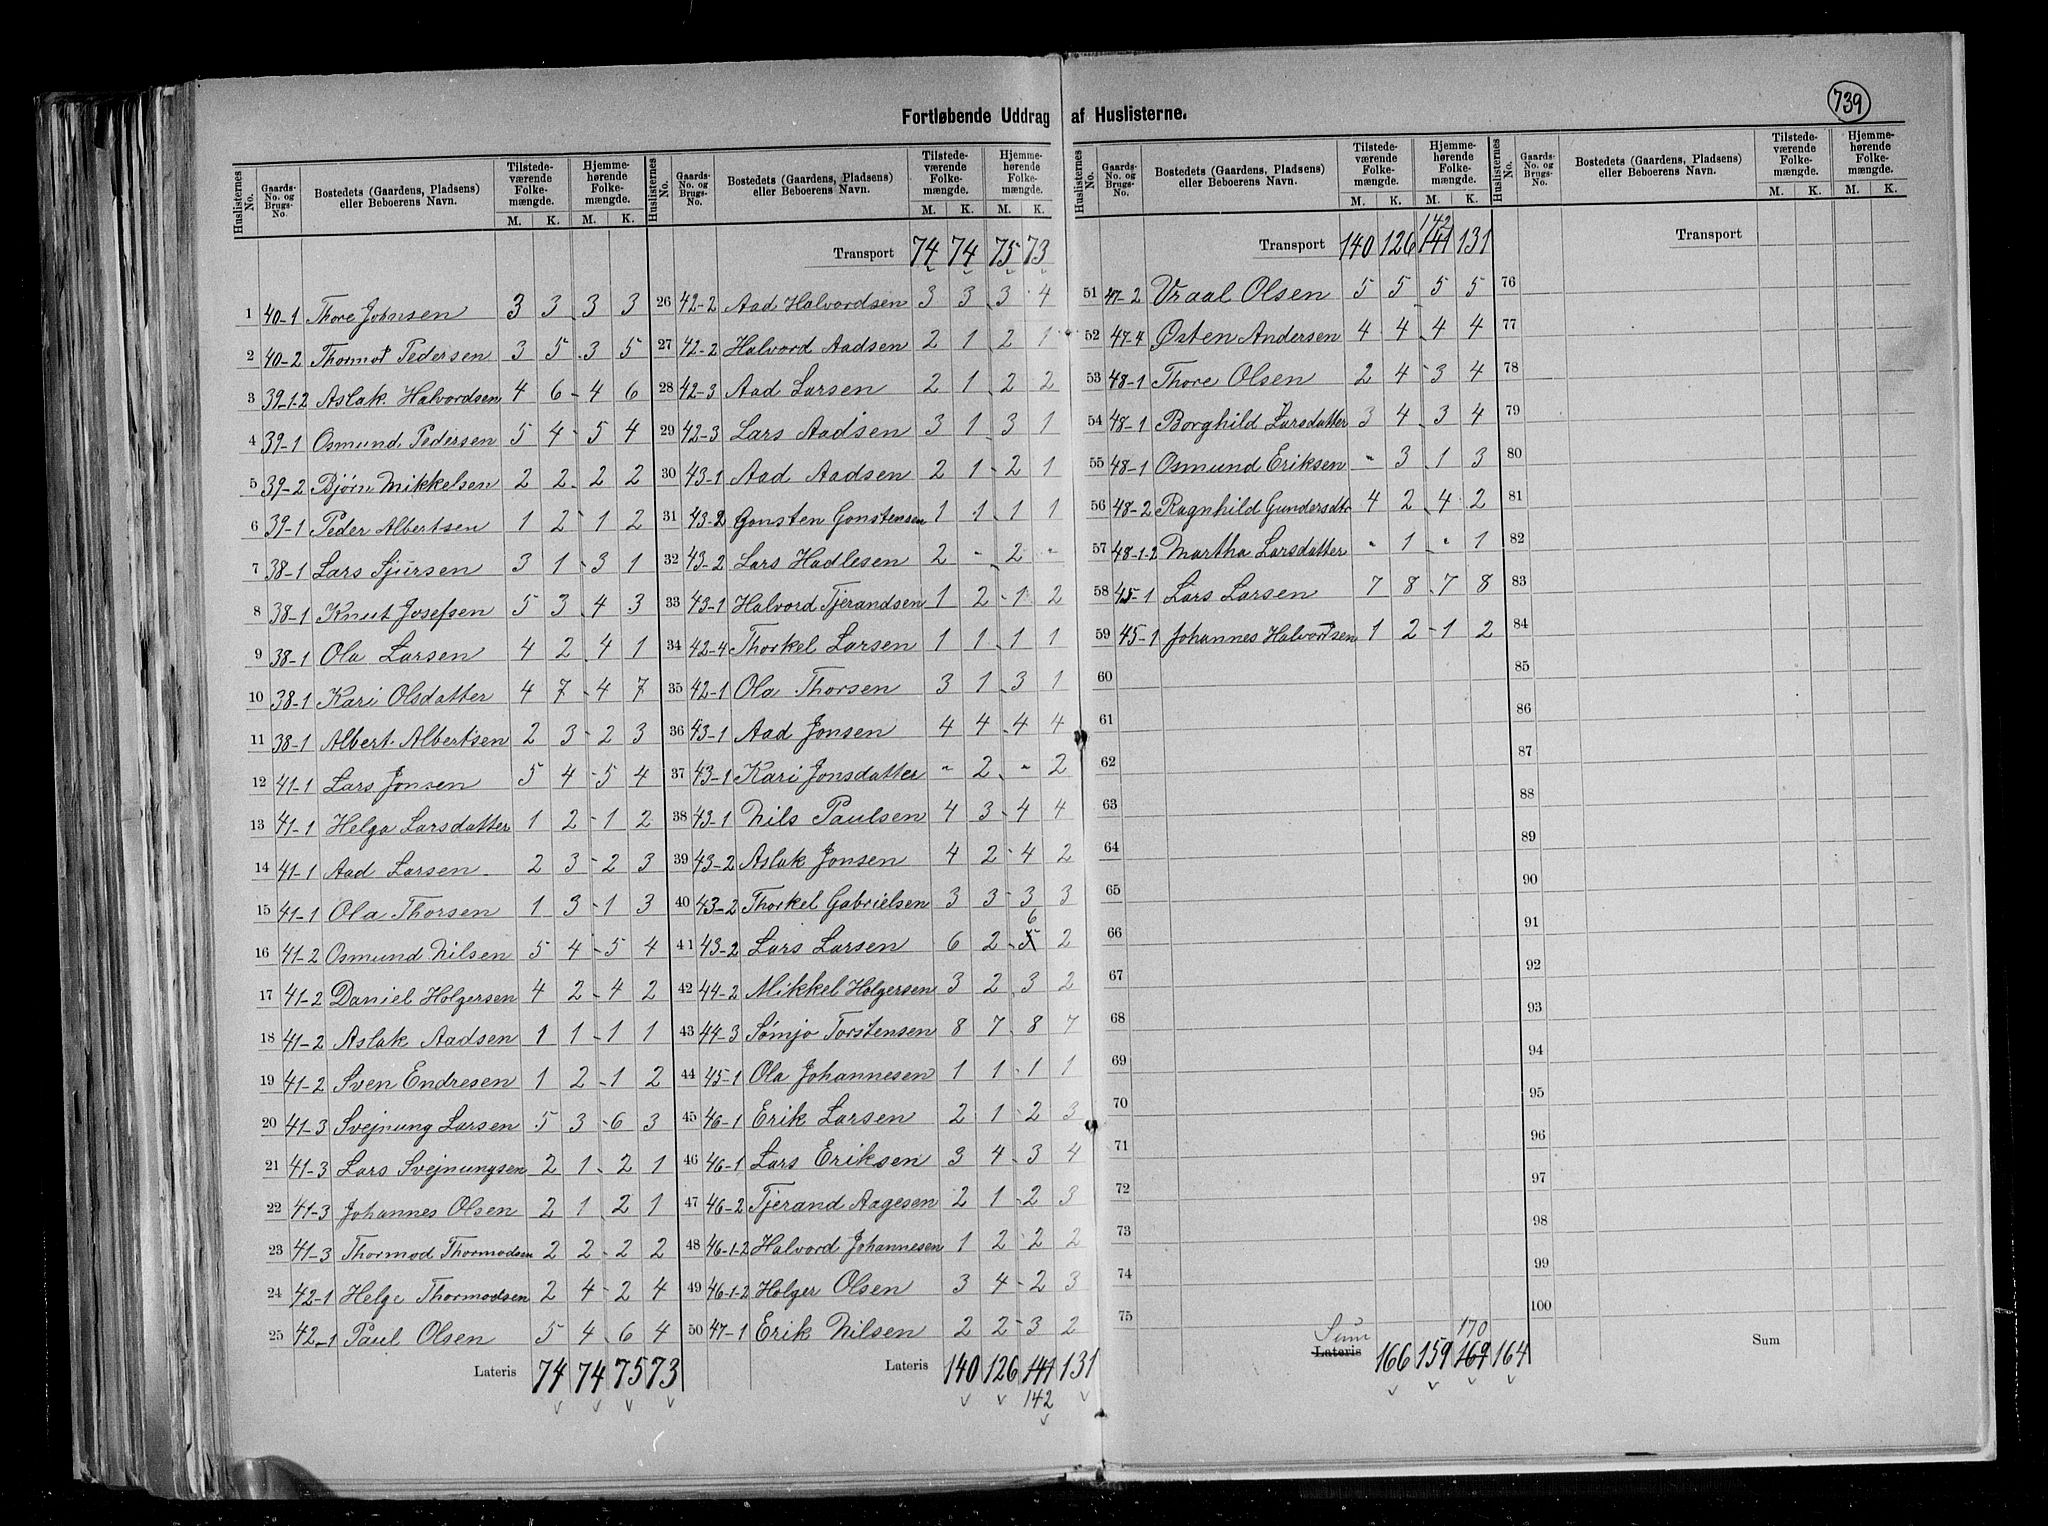 739
Fortløbende Uddrag af Huslisterne.
Huslisternes No. Gaards-No. og Brugs-No. Bostedets (Gaardens, Pladsens) eller Beboerens Navn. Tilstedeværende Folkemængde. M. K. Hjemmehørende Folkemængde. M. K.
1 40-1 Thore Johnsen 3 3 3 3
2 40-2 Thormod Pedersen 3 5 3 5
3 39-1.2 Aslak Halvordsen 4 6 4 6
4 39-1 Osmund Pedersen 5 4 5 4
5 39-2 Bjørn Mikkelsen 2 2 2 2
6 39-1 Peder Albertsen 1 2 1 2
7 38-1 Lars Sjursen 3 1 3 1
8 38-1 Knut Josefsen 5 3 4 3
9 38-1 Ola Larsen 4 2 4 1
10 38-1 Kari Olsdatter 4 7 4 7
11 38-1 Albert Albertsen 2 3 2 3
12 41-1 Lars Jonsen 5 4 5 4
13 41-1 Helga Larsdatter 1 2 1 2
14 41-1 Aad Larsen 2 3 2 3
15 41-1 Ola Thorsen 1 3 1 3
16 41-2 Osmund Nilsen 5 4 5 4
17 41-2 Daniel Holgersen 4 2 4 2
18 41-2 Aslak Aadsen 1 1 1 1
19 41-2 Sven Endresen 1 2 1 2
20 41-3 Svejnung Larsen 5 3 6 3
21 41-3 Lars Svejnungsen 2 1 2 1
22 41-3 Johannes Olsen 2 1 2 1
23 41-3 Thormod Thormodsen 2 2 2 2
24 42-1 Helge Thormodsen 2 4 2 4
25 42-1 Paul Olsen 5 4 6 4
Lateris 74 74 75 73
Huslisternes No. Gaards-No. og Brugs-No. Bostedets (Gaardens, Pladsens) eller Beboerens Navn. Tilstedeværende Folkemængde. M. K. Hjemmehørende Folkemængde. M. K.
Transport 74 74 75 73
26 42-2 Aad Halvordsen 3 3 3 4
27 42-2 Halvord Aadsen 2 1 2 1
28 42-3 Aad Larsen 2 1 2 2
29 42-3 Lars Aadsen 3 1 3 1
30 43-1 Aad Aadsen 2 1 2 1
31 43-2 Gonsten Gonstensen 1 1 1 1
32 43-2 Lars Hadlesen 2 " 2 "
33 43-1 Halvord Tjerandsen 1 2 1 2
34 42-4 Thorkel Larsen 1 1 1 1
35 42-1 Ola Thorsen 3 1 3 1
36 43-1 Aad Jonsen 4 4 4 4
37 43-1 Kari Jonsdatter " 2 " 2
38 43-1 Nils Paulsen 4 3 4 4
39 43-2 Aslak Jonsen 4 2 4 2
40 43-2 Thorkel Gabrielsen 3 3 3 3
41 43-2 Lars Larsen 6 2 5 6 2
42 44-2 Mikkel Holgersen 3 2 3 2
43 44-3 Sømjo Torstensen 8 7 8 7
44 45-1 Ola Johannesen 1 1 1 1
45 46-1 Erik Larsen 2 1 2 3
46 46-1 Lars Eriksen 3 4 3 4
47 46-2 Tjerand Aagesen 2 1 2 3
48 46-1-2 Halvord Johannesen 1 2 2 2
49 46-1-2 Holger Olsen 3 4 2 3
50 47-1 Erik Nilsen 2 2 3 2
Lateris 140 126 141 131
142
Huslisternes No. Gaards-No. og Brugs-No. Bostedets (Gaardens, Pladsens) eller Beboerens Navn. Tilstedeværende Folkemængde. M. K. Hjemmehørende Folkemængde. M. K.
142
Transport 140 126 141 131
51 47-2 Vraal Olsen 5 5 5 5
52 47-4 Østen Andersen 4 4 4 4
53 48-1 Thore Olsen 2 4 3 4
54 48-1 Borghild Larsdatter 3 4 3 4
55 48-1 Osmund Eriksen " 3 1 3
56 48-2 Ragnhild Gundersdtr 4 2 4 2
57 48-1-2 Martha Larsdatter " 1 " 1
58 45-1 Lars Larsen 7 8 7 8
59 45-1 Johannes Halvordsen 1 2 1 2
60
61
62
63
64
65
66
67
68
69
70
71
72
73
74
75
Sum 170
Lateris 166 159 169 164
Huslisternes No. Gaards-No. og Brugs-No. Bostedets (Gaardens, Pladsens) eller Beboerens Navn. Tilstedeværende Folkemængde. M. K. Hjemmehørende Folkemængde. M. K.
Transport
76
77
78
79
80
81
82
83
84
85
86
87
88
89
90
91
92
93
94
95
96
97
98
99
100
Sum